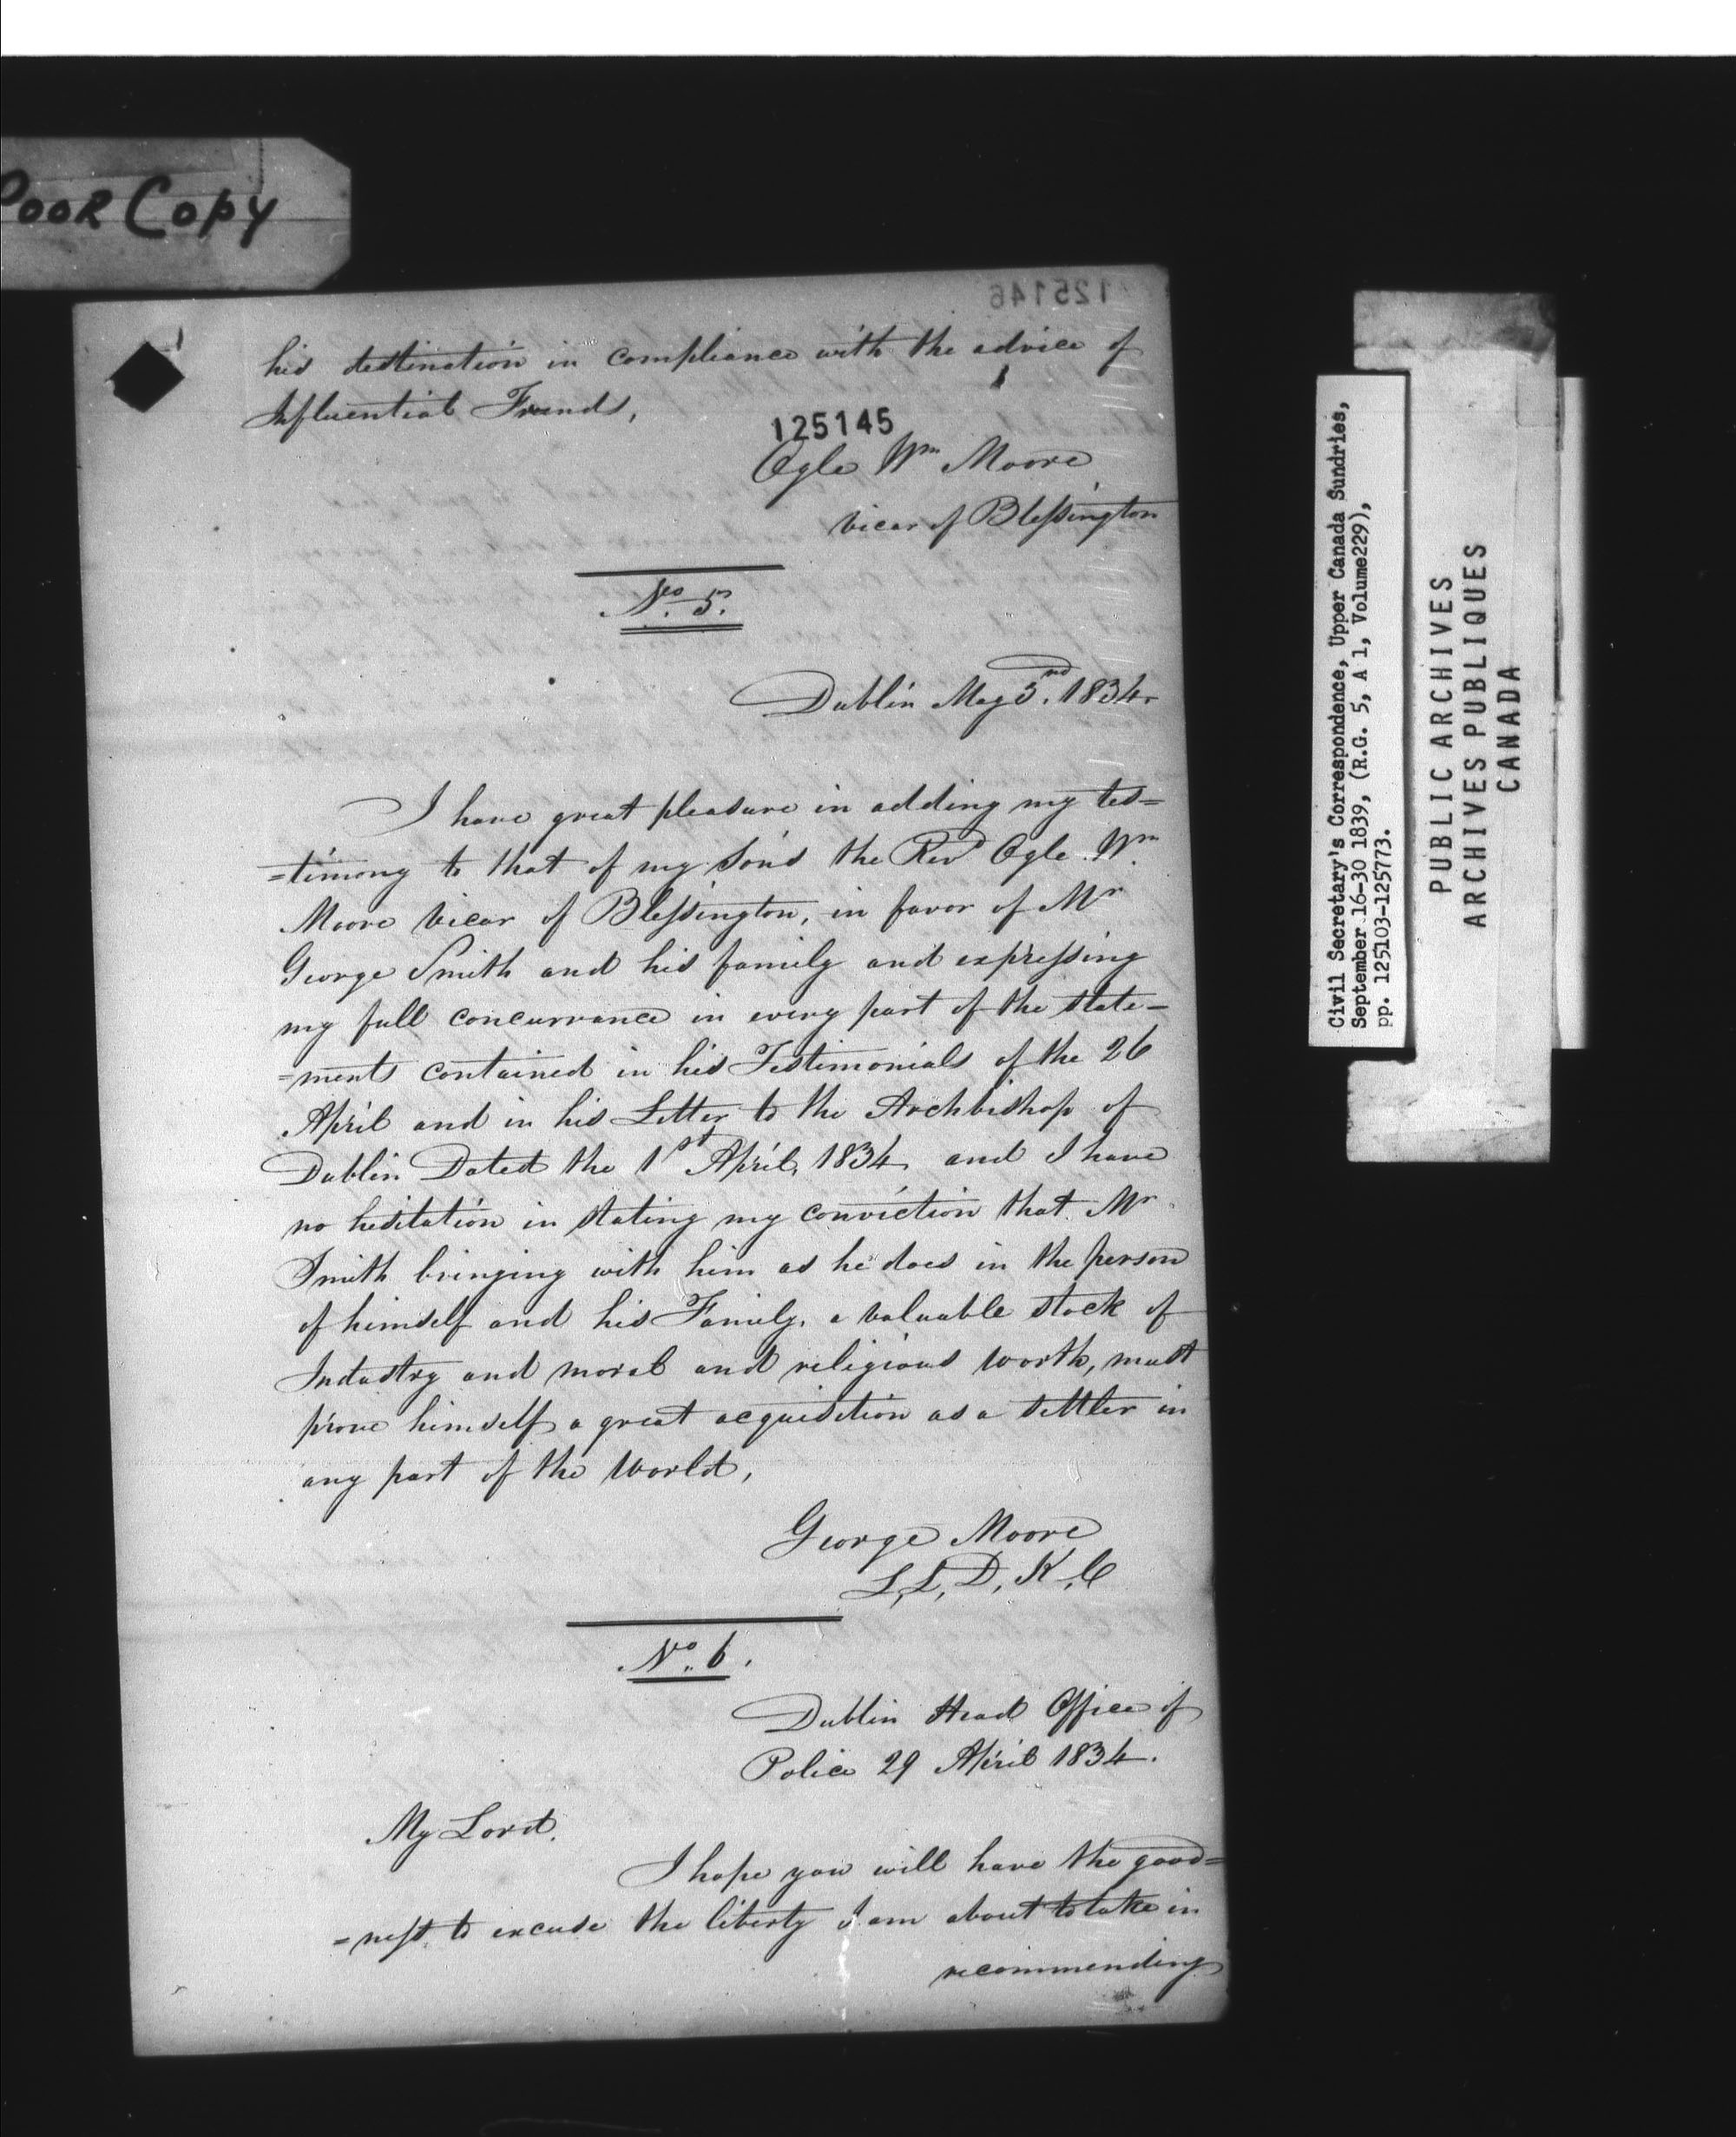 Poor Copy
125146
his destination in compliance with the advice of
Influential Friends,
125145
Ogle Wm Moore
Vicar of Blessington
No. 5.
Dublin May 3rd. 1834.
I have great pleasure in adding my tes=
=timony to that of my son's the Revd Ogle Wm
Moore Vicar of Blessington, in favor of Mr
George Smith and his family and expressing
my full concurrance in every part of the state=
=ments contained in his Testimonials of the 26
April and in his Letter to the Archbishop of
Dublin Dated the 1st April, 1834, and I have
no hesitation in stating my conviction that Mr
Smith bringing with him as he does in the person
of himself and his Family, a valuable stock of
Industry and moral and religious worth, must
prove himself a great acquisition as a settler in
any part of the World,
George Moore
L,L,D, K,C
No. 6.
Dublin Head Office of
Police 29 April 1834.
My Lord,
I hope you will have the good=
=ness to excuse the liberty I am about to take in
recommending
Civil Secretary's Correspondence, Upper Canada Sundries,
September 16-30 1839, (R.G. 5, A 1, Volume229),
pp. 125103-125773.
PUBLIC ARCHIVES
ARCHIVES PUBLIQUES
CANADA